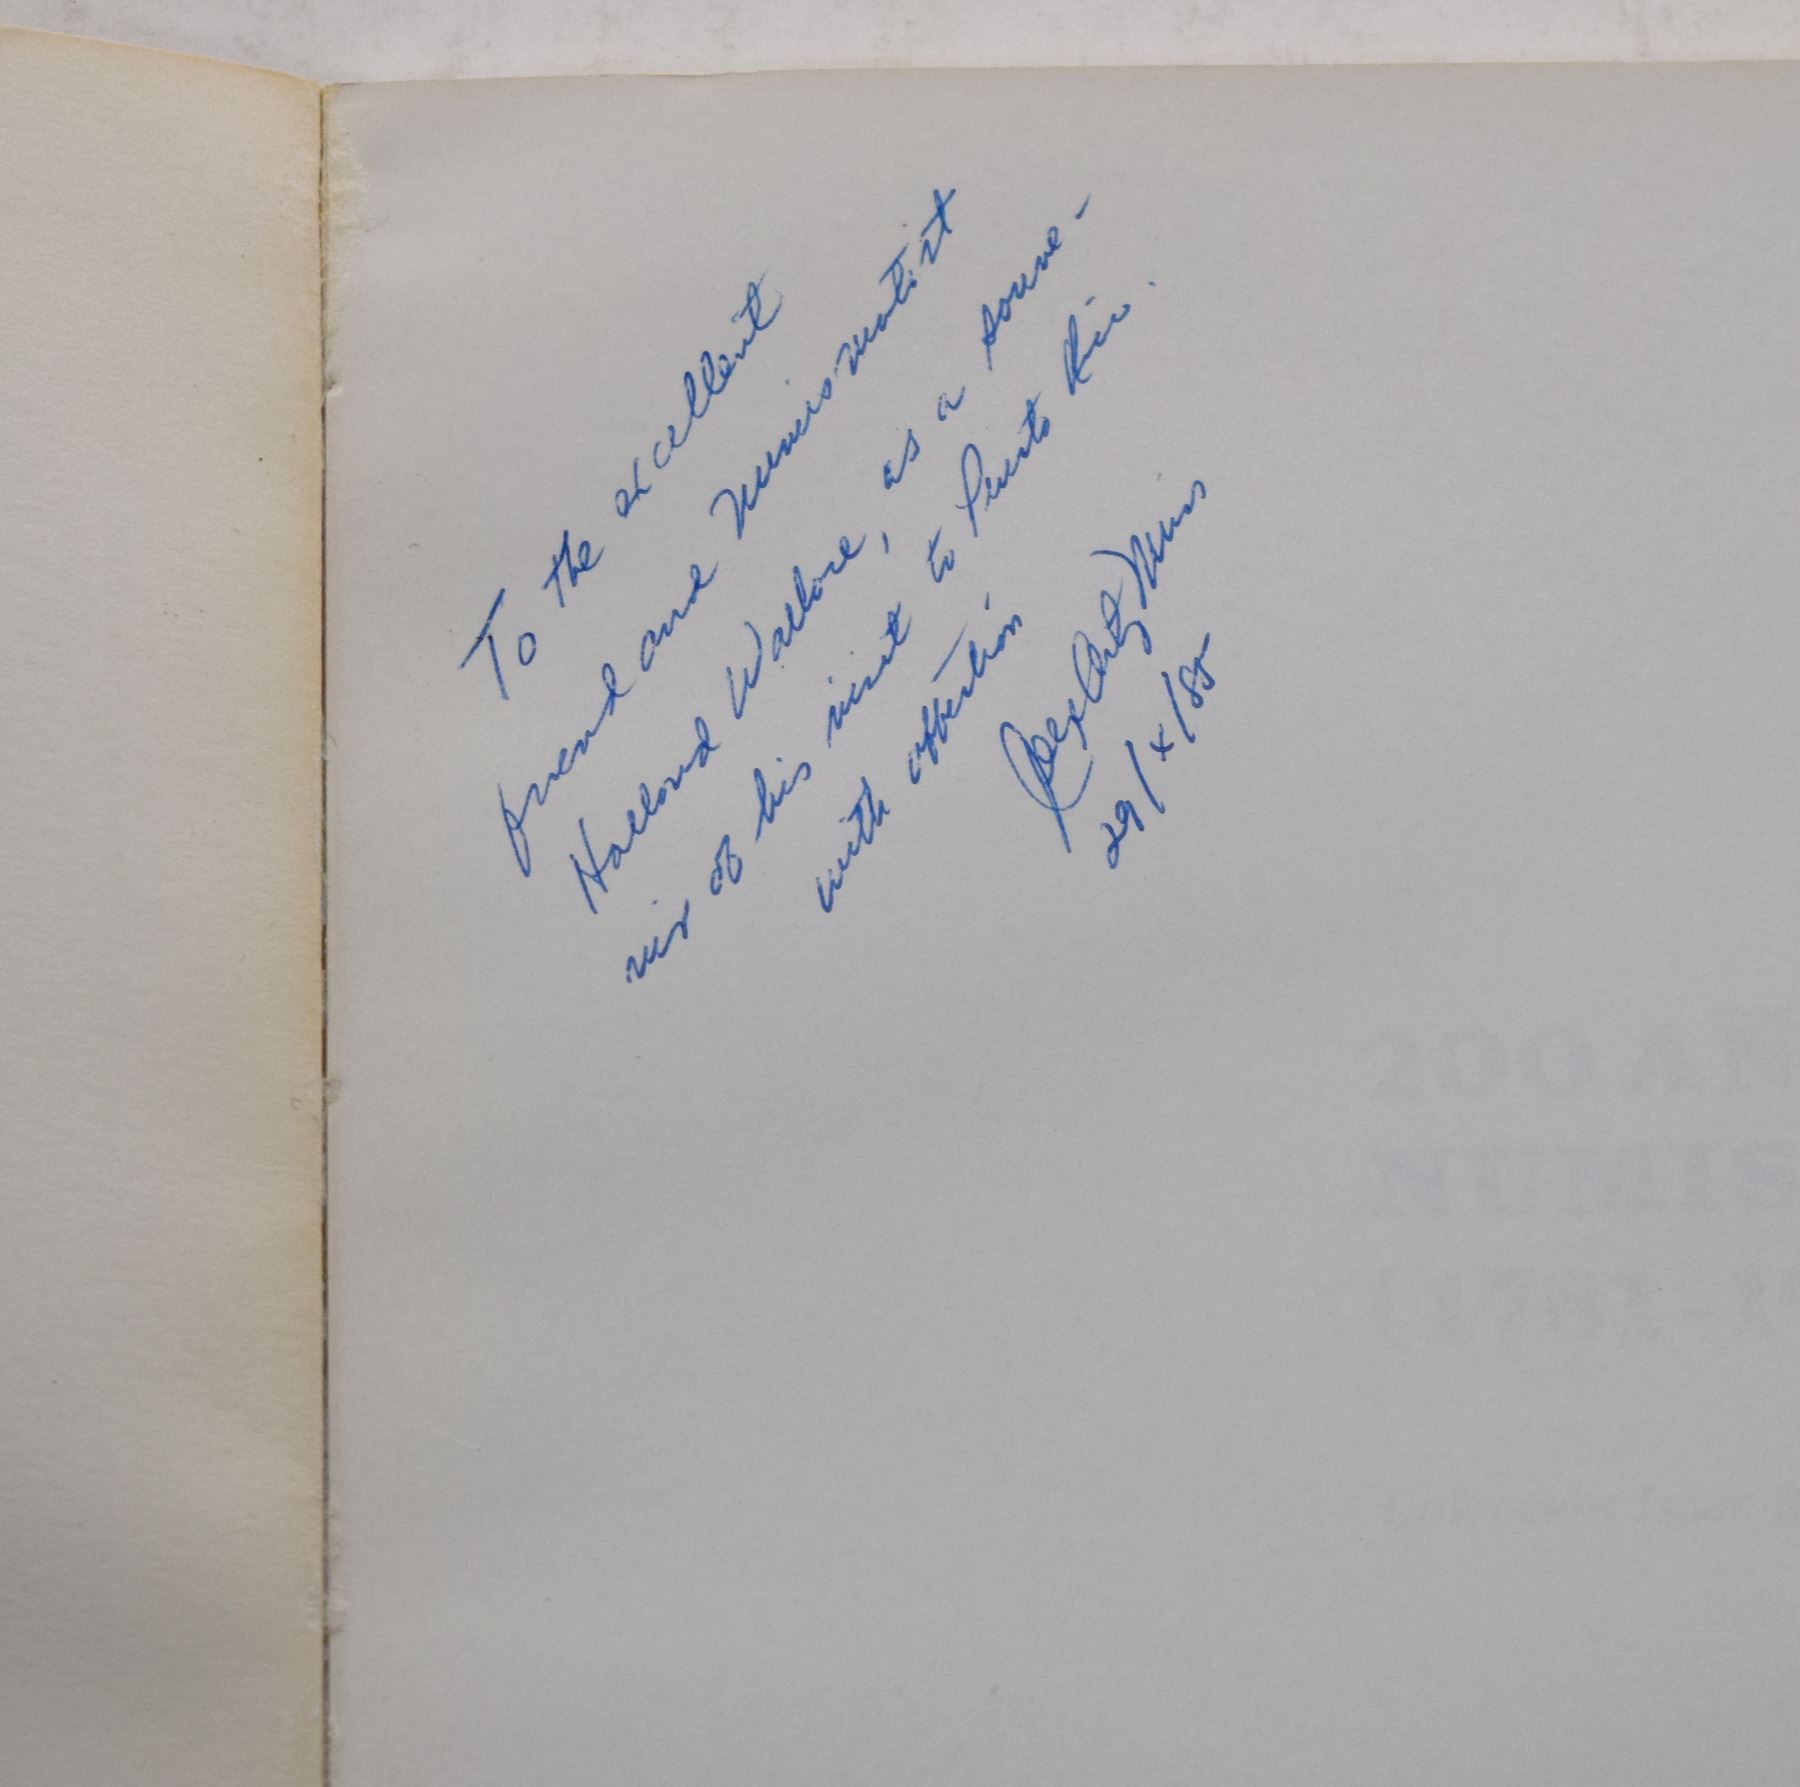 To the excellent
friend and numismatist
Holland Wallace, as a souve-
nir of his visit to Puerto Rico.
with affection
29/4/85